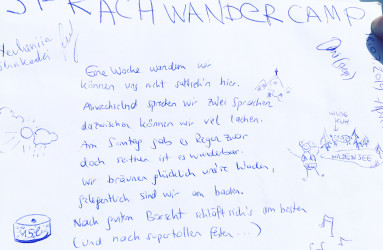 SPRACHWANDERCAMP
Eine Woche wandern wir
können uns nicht sattseh'n hier.
Abwechselnd sprechen wir zwei Sprachen
dazwischen können wir viel lachen.
Am Samstag gab es Regen zwar
doch seither ist es wunderbar.
Wir bräunen glücklich uns're Waden,
gelegentlich sind wir am baden.
Nach gutem Borscht schläft sich's am besten
(und nach supertollen Festen...)
WILDE
KUH
WILDENSEE